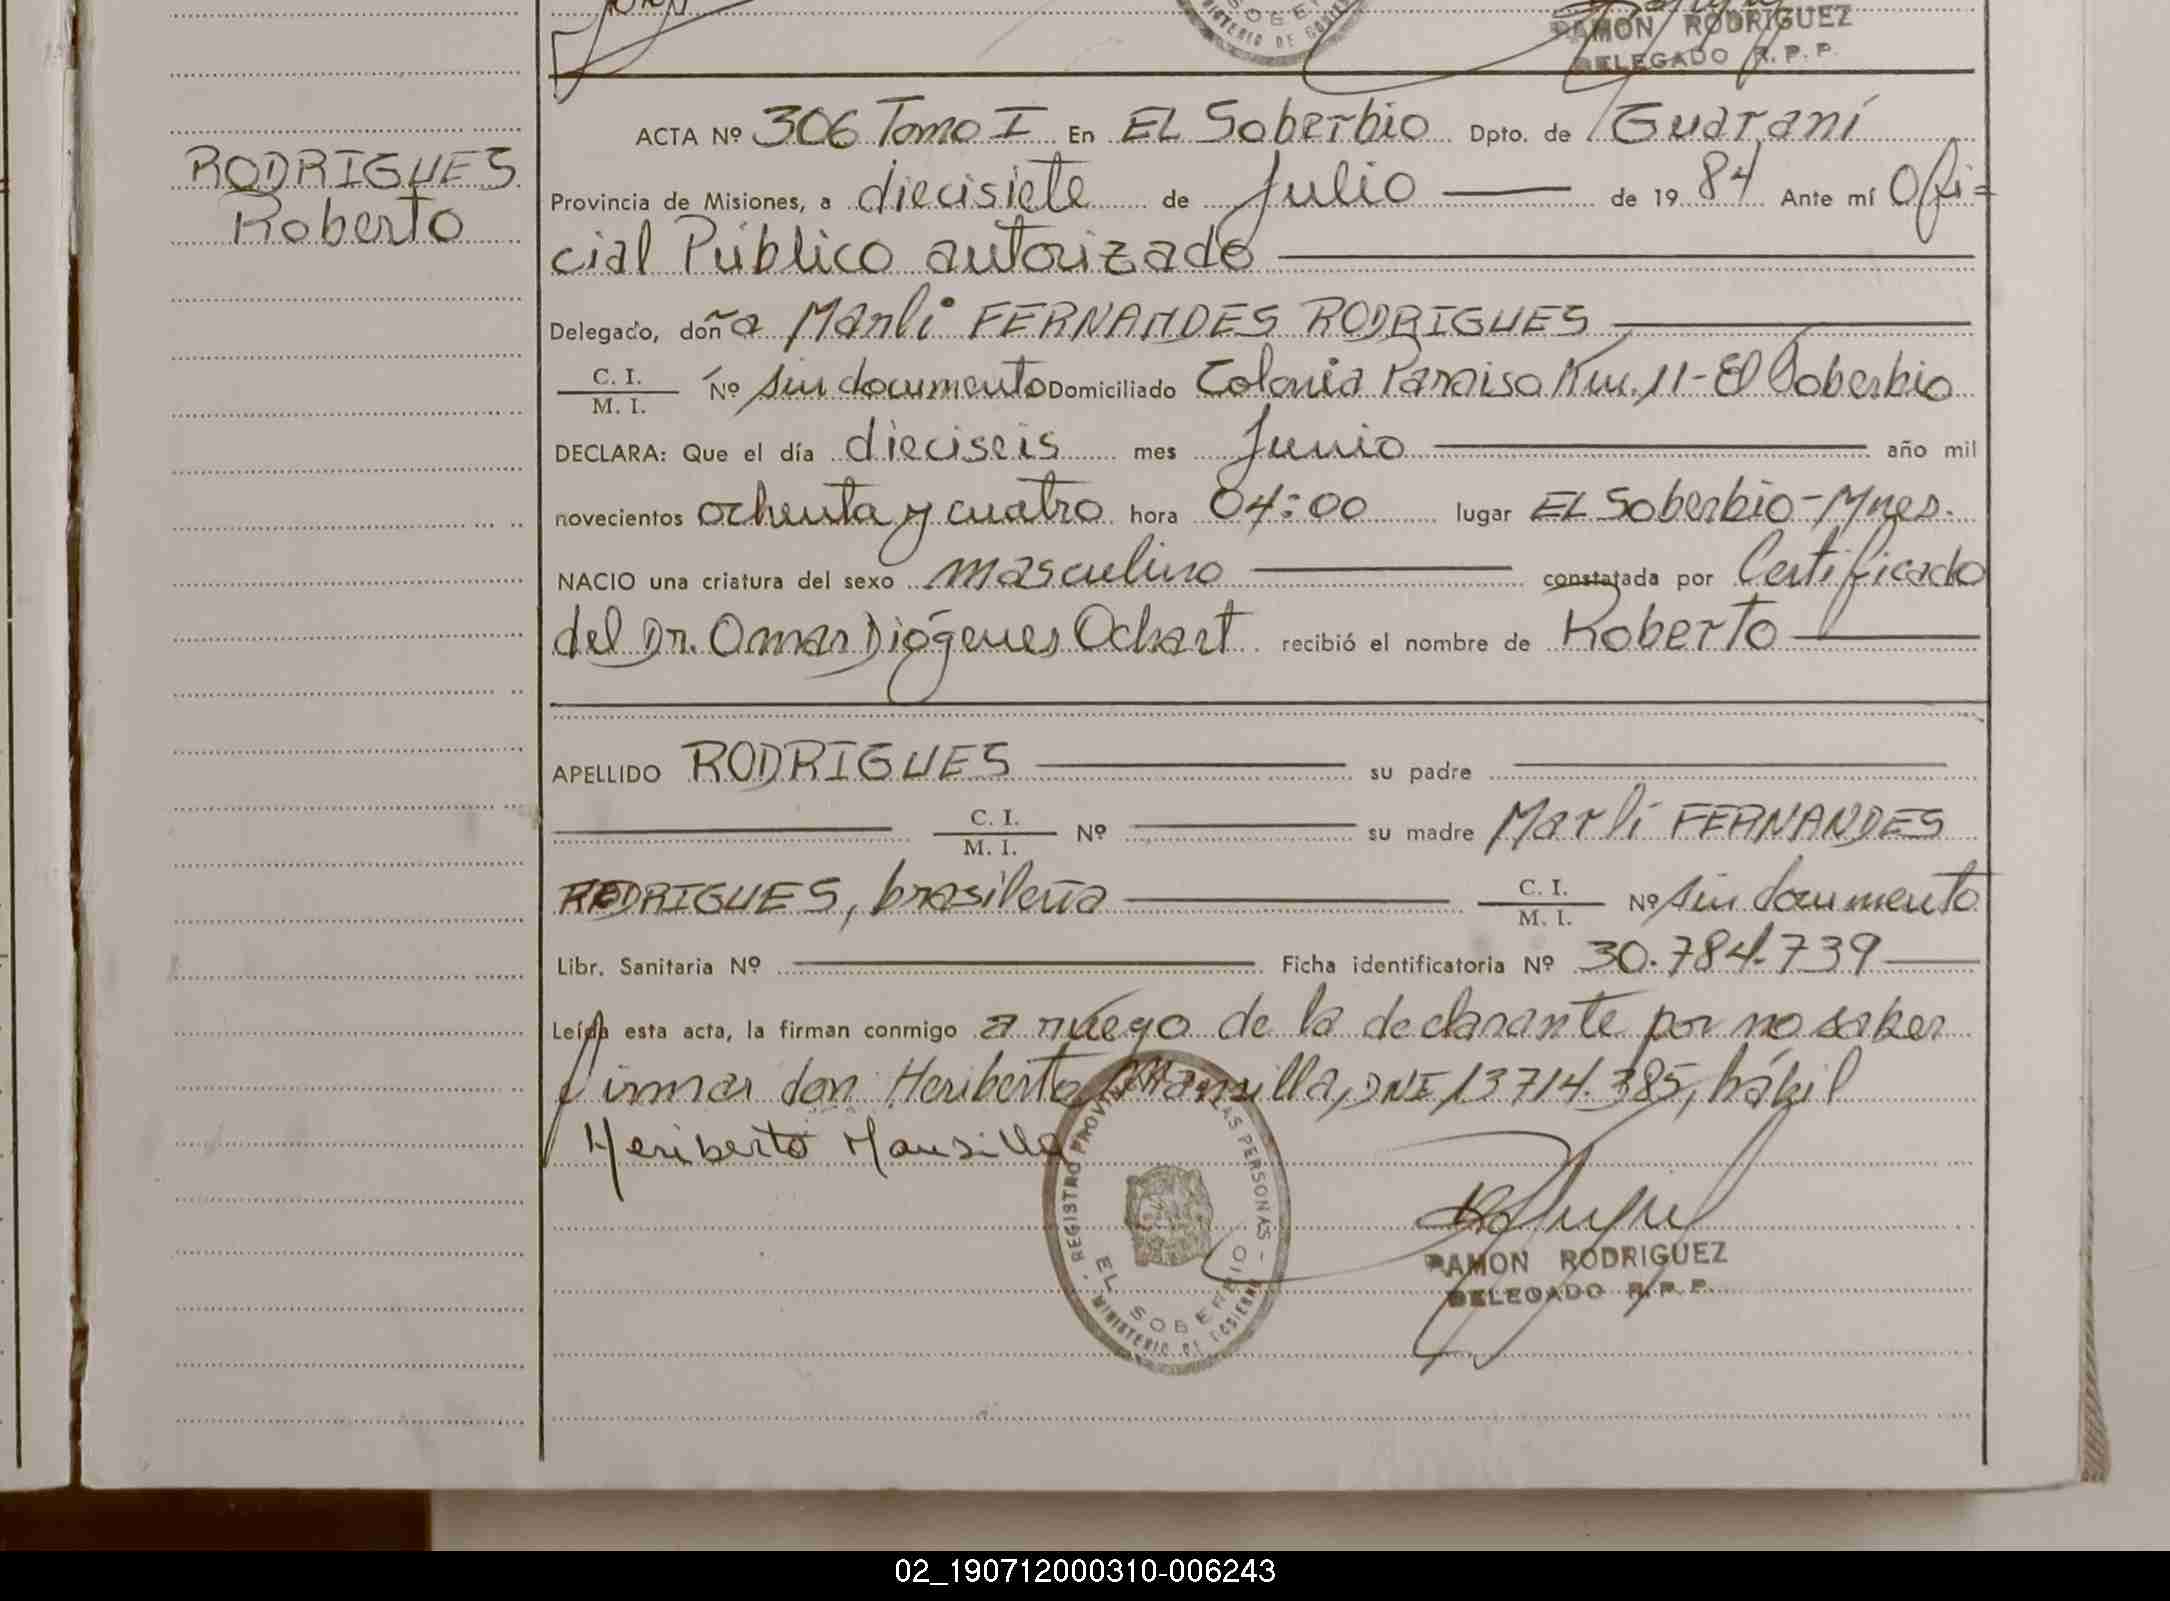 RAMON RODRIGUEZ
DELEGADO R.P.P.
RODRIGUES
Roberto
ACTA Nº 306 Tomo I En EL Soberbio Dpto. de Guaraní
Provincia de Misiones, a diecisiete de Julio de 19 84 Ante mí Ofi=
cial Público autorizado
Delegado, doña Marli FERNANDES RODRIGUES
C. I. / M. I. Nº sin documento Domiciliado Colonia Paraiso Km. 11 - El Soberbio
DECLARA: Que el día dieciseis mes Junio año mil
novecientos ochenta y cuatro hora 04:00 lugar EL Soberbio - Mnes.
NACIO una criatura del sexo masculino constatada por Certificado
del Dr. Omar Diógenes Ochart recibió el nombre de Roberto
APELLIDO RODRIGUES su padre
C. I. / M. I. Nº su madre Marli FERNANDES
RODRIGUES, brasileña C. I. / M. I. Nº sin documento
Libr. Sanitaria Nº Ficha identificatoria Nº 30.784.739
Leída esta acta, la firman conmigo a ruego de la declarante por no saber
firmar don Heriberto Mansilla, DNI 13714.385, hábil
Heriberto Mansilla
REGISTRO PROVINCIAL DE LAS PERSONAS
EL SOBERBIO
MINISTERIO DE GOBIERNO
RAMON RODRIGUEZ
DELEGADO R.P.P.
02_190712000310-006243